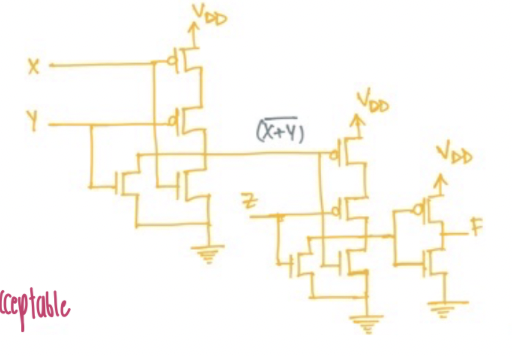 VDD
X
Y
(X+Y)‾
VDD
VDD
Z
F
cceptable